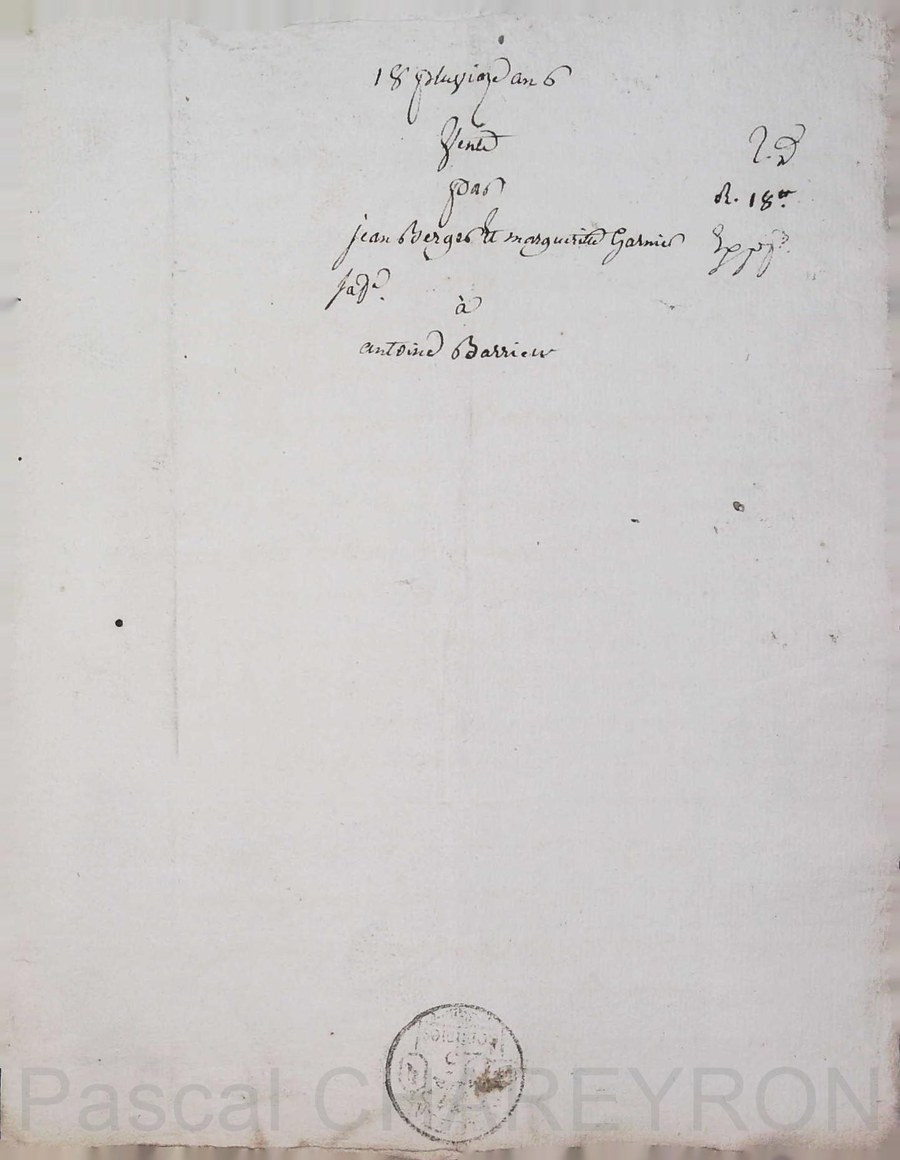 18 pluviôse an 6
Vente
par
R. 18tt
jean Berger et marguerite Garnier
à
antoine Barrieu
Pascal CHAREYRON